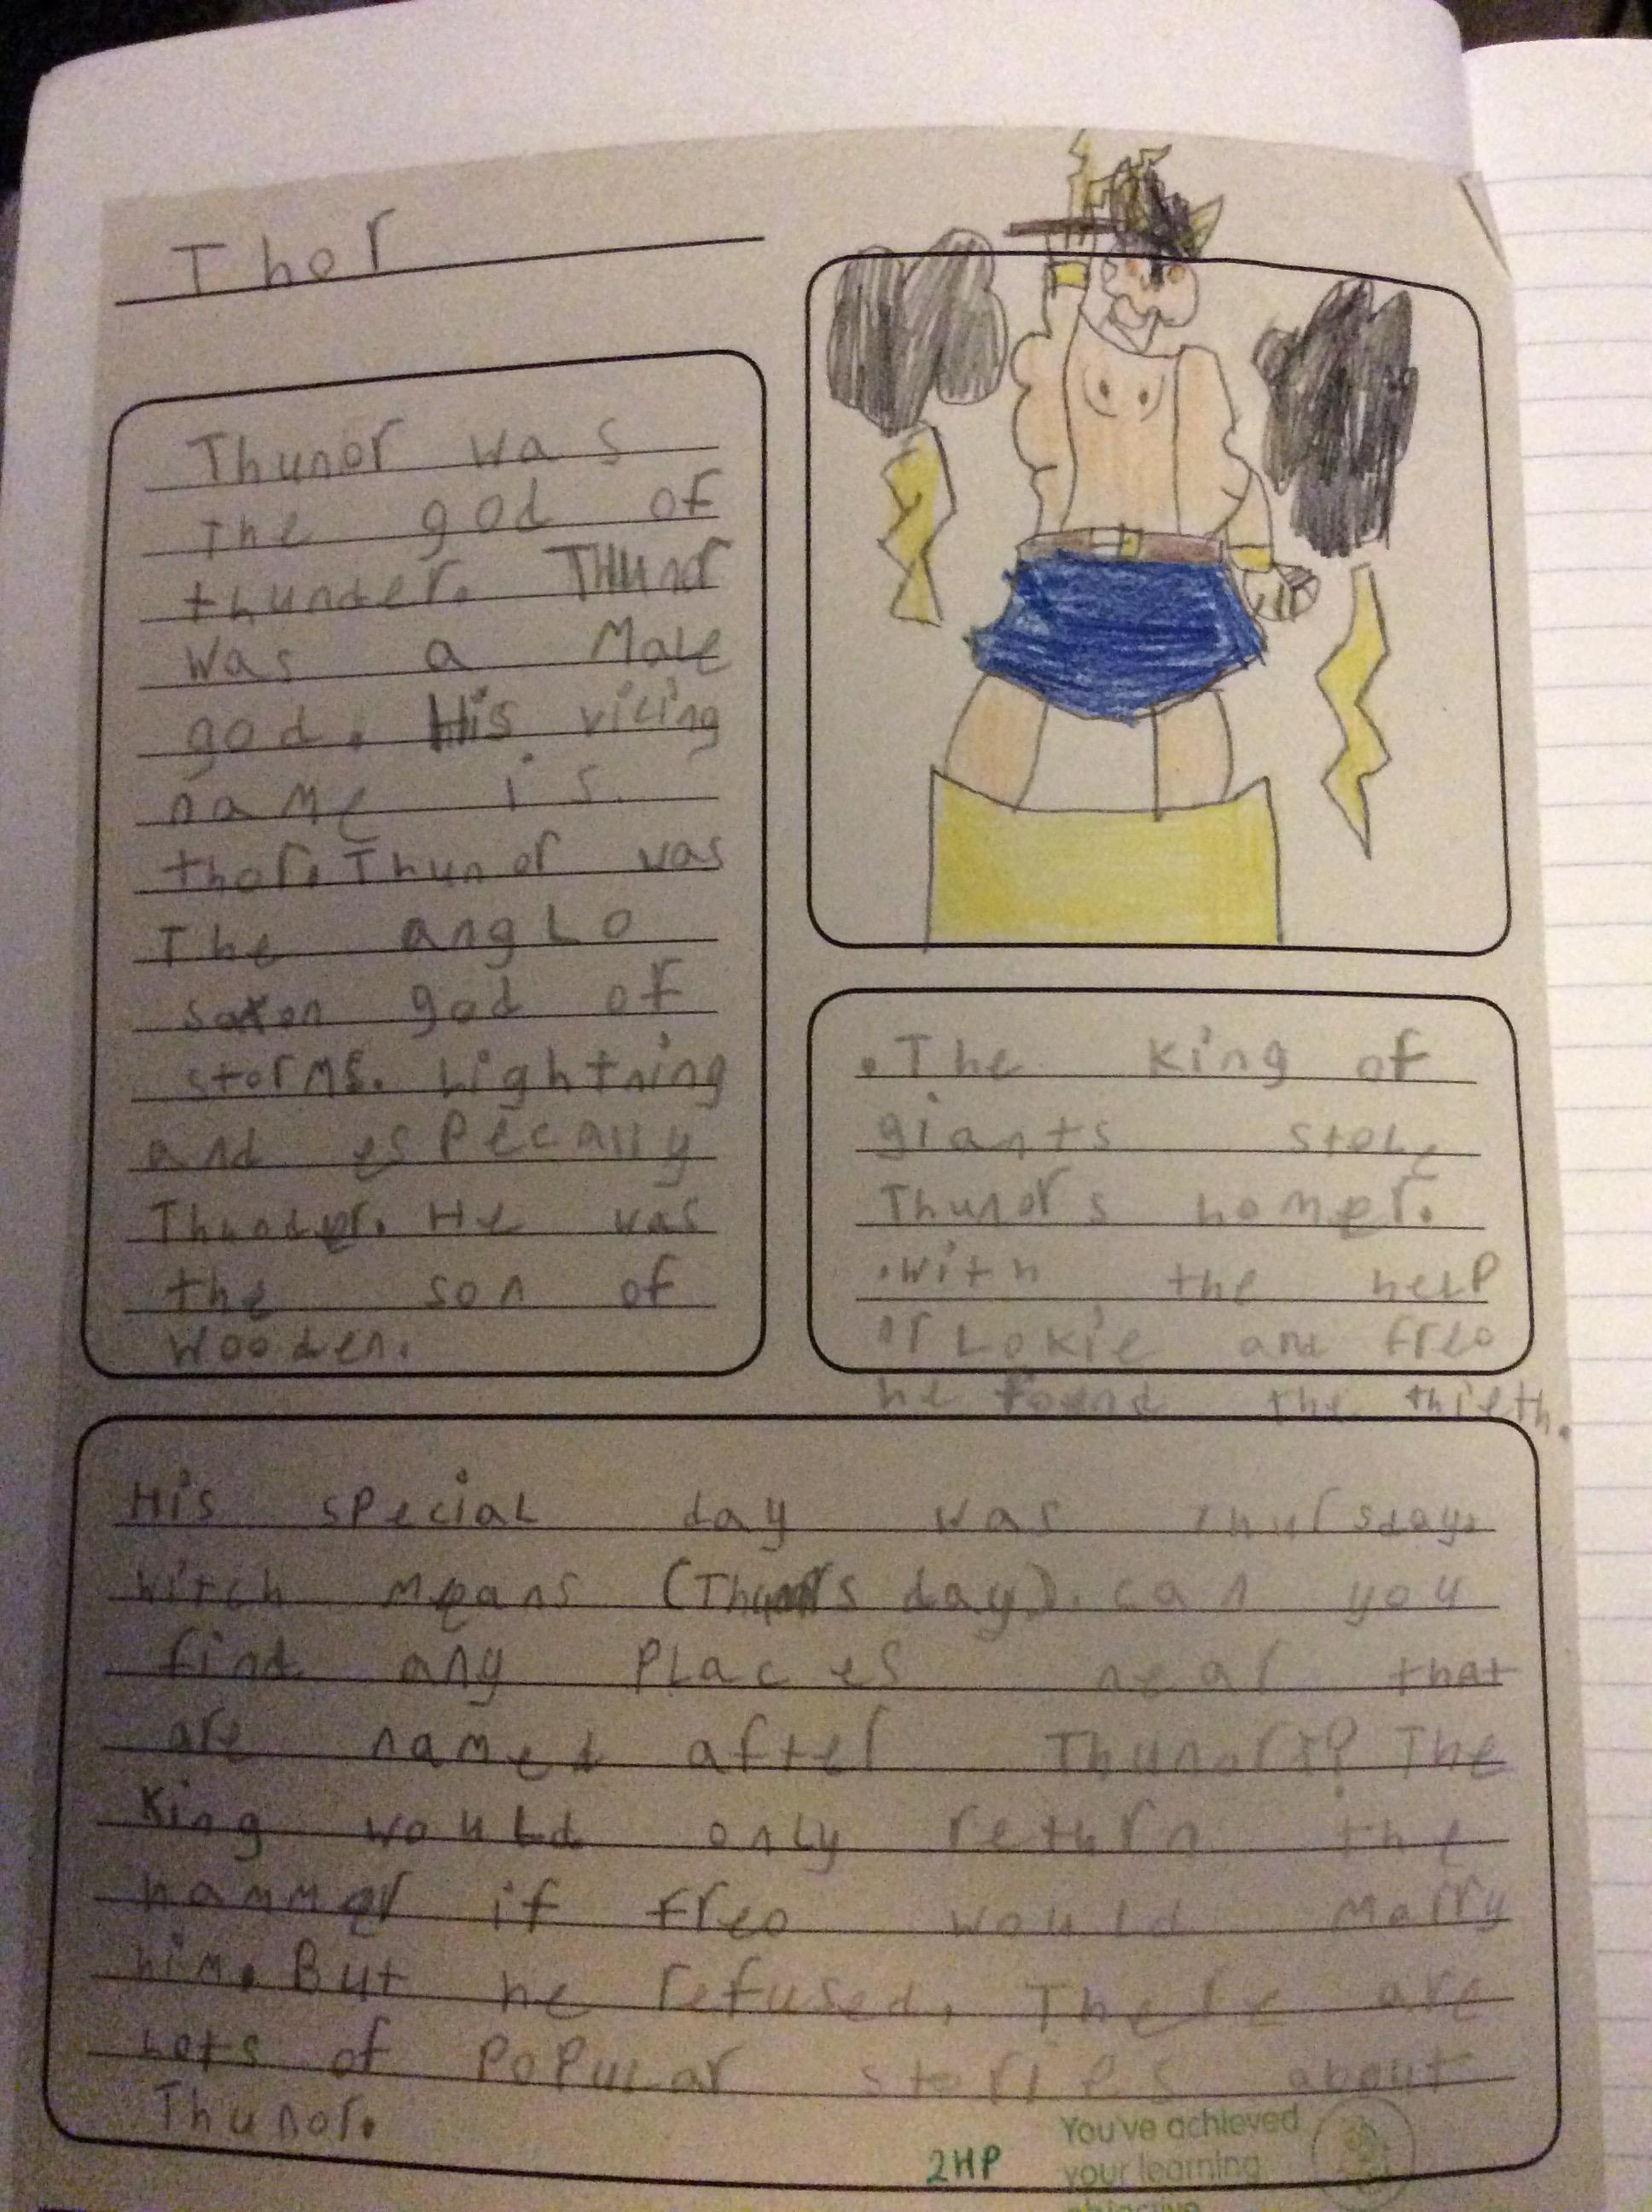 Thor
Thunor was
The god of
thunder. THunor
was a Male
god. His viking
name is
thor. Thunor was
The anglo
saxon god of
storms. Lightning
and especally
Thunder. He was
the son of
Wooden.
.The King of
giants stole
Thunors homer.
.with the help
of Lokie and freo
he found the thieth.
His special day was Thursday.
witch means (Thunors day). can you
find any places near that
are named after Thunor? The
King would only return the
hammer if freo would marry
him. But he refused. There are
Lots of Popular stories about
Thunor.
2HP
You've achieved
your learning
objective